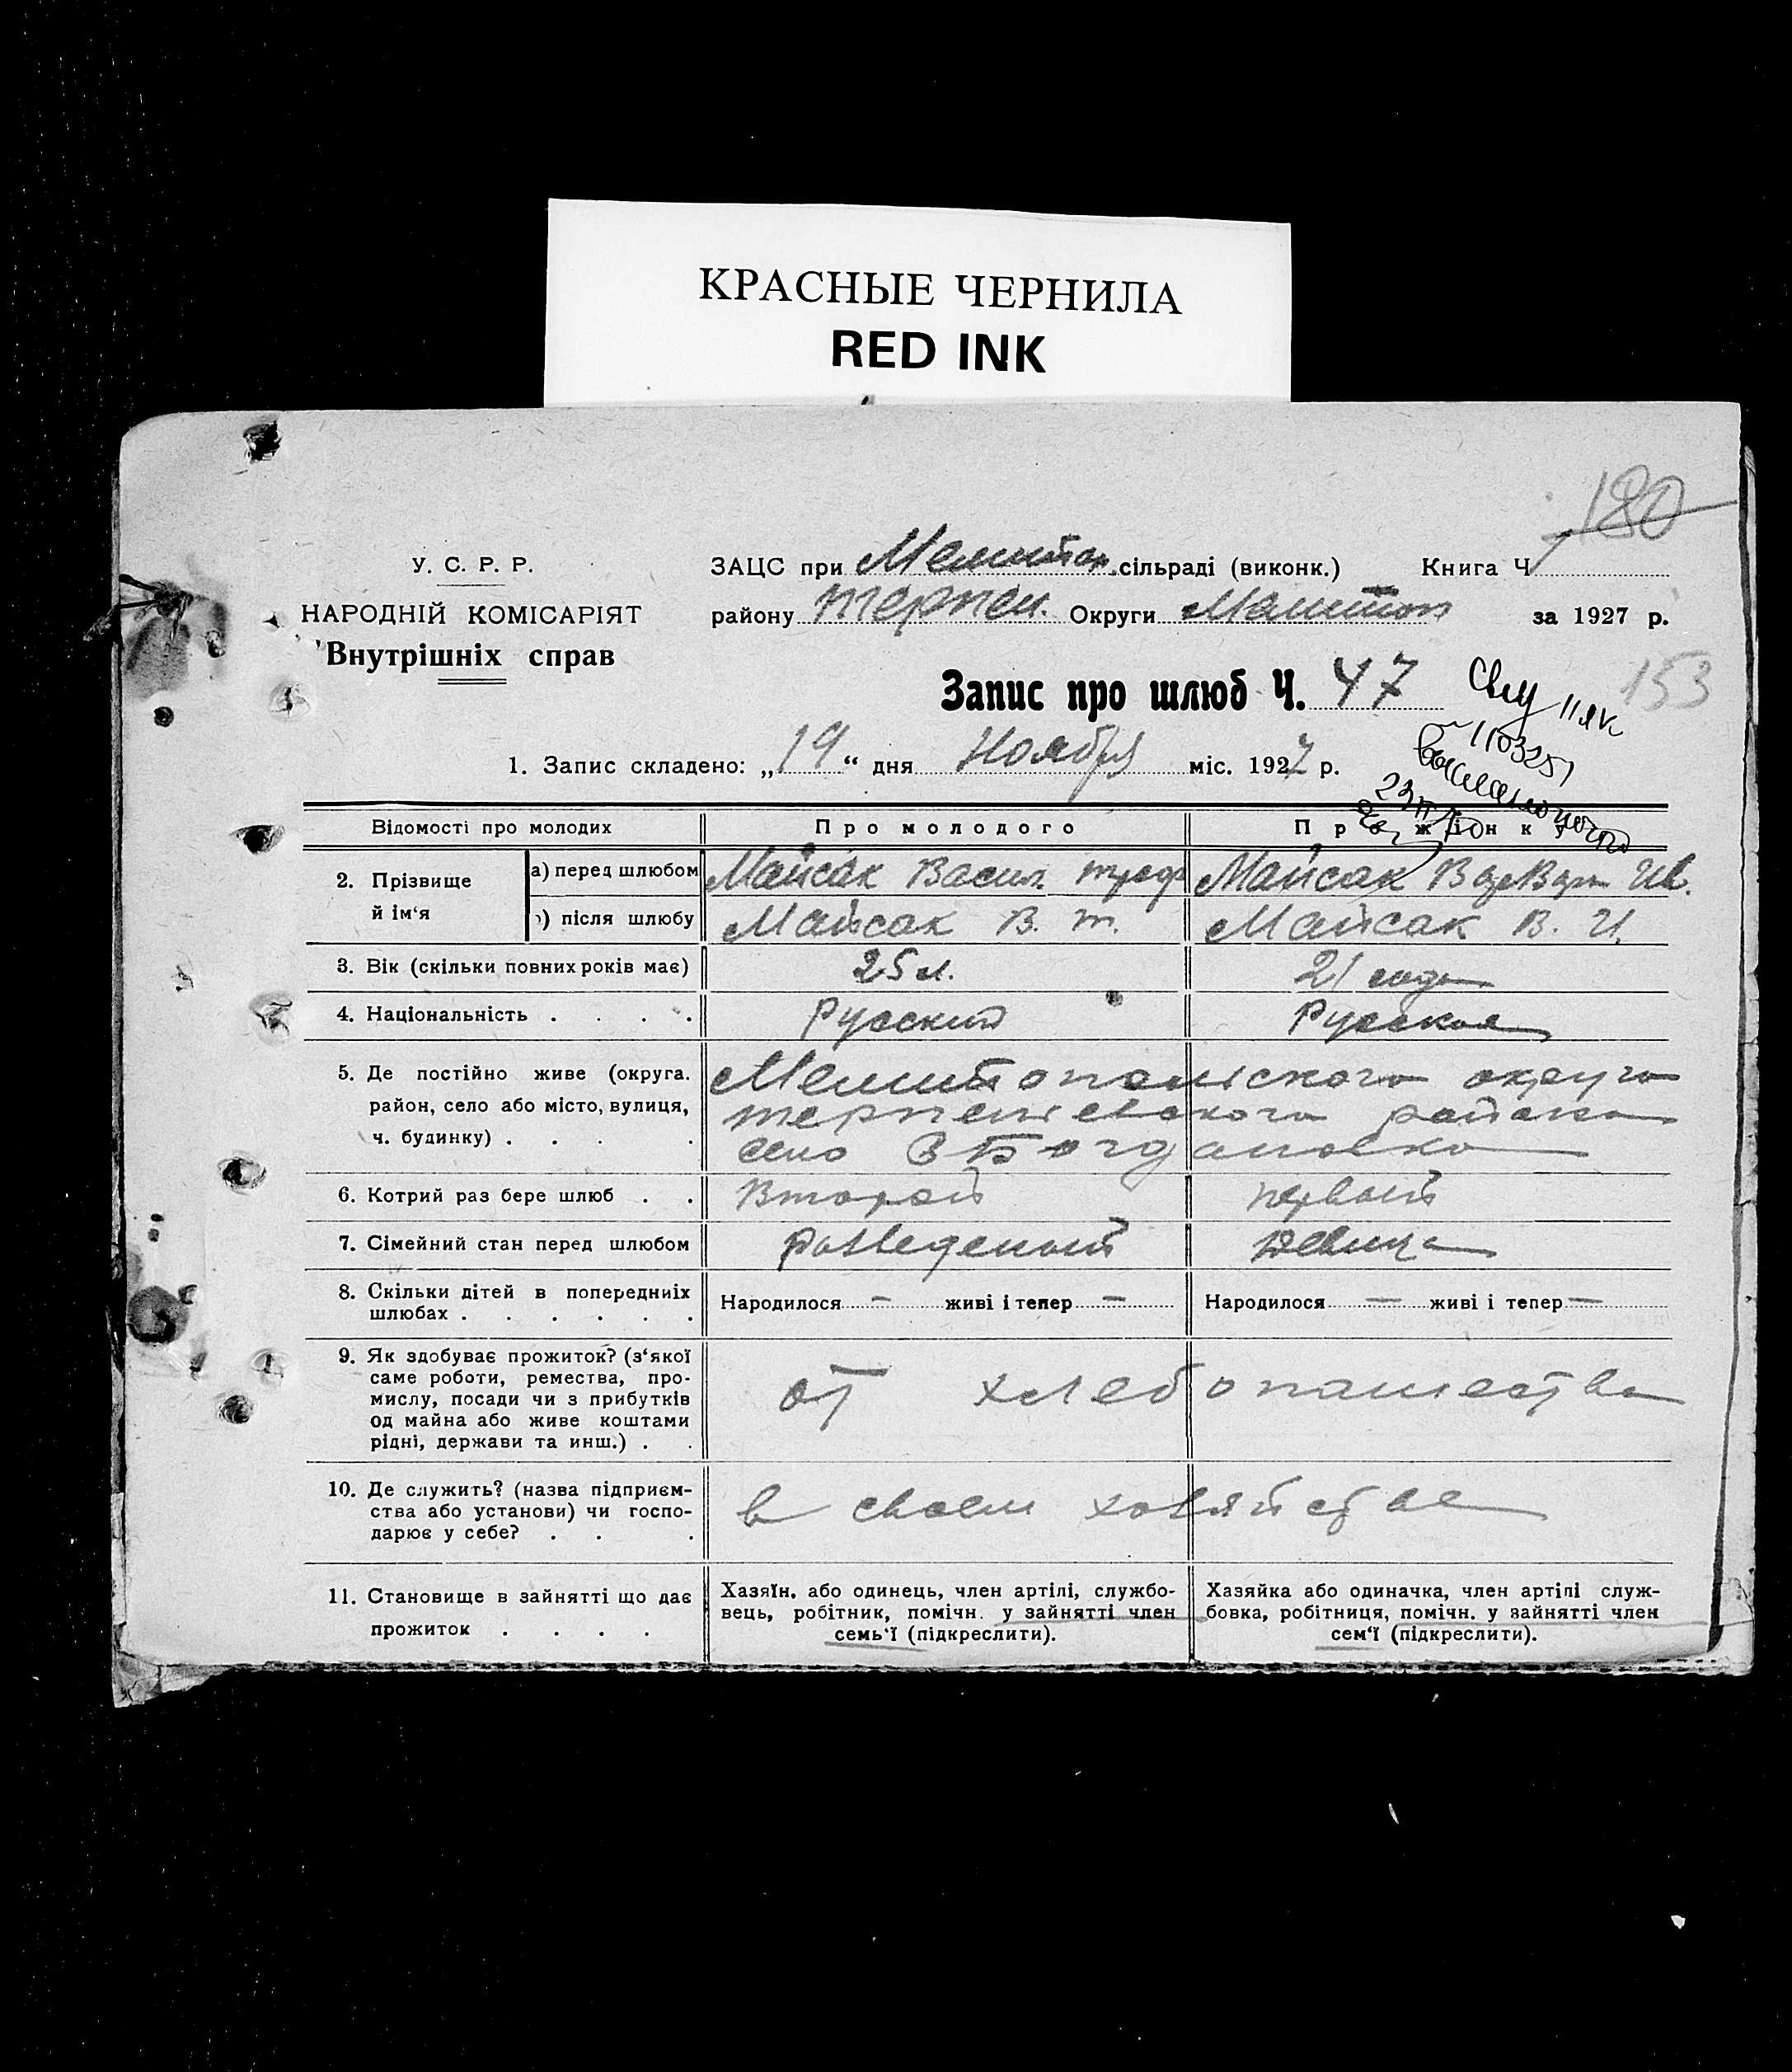 КРАСНЫЕ ЧЕРНИЛА
RED INK
180
У. С. Р. Р.
НАРОДНІЙ КОМІСАРІЯТ
Внутрішніх справ
ЗАЦС при Мелитоп. сільраді (виконк.) Книга Ч
району Терпен. Округи Мелитоп за 1927 р.
153
Запис про шлюб Ч. 47
1. Запис складено: „19“ дня Ноября міс. 1927 р.
Відомості про молодих Про молодого Про жінку
2. Прізвище й ім‘я
а) перед шлюбом Майсак Васил. Майсак Ив.
після шлюбу Майсак В. Т. Майсак В. И.
3. Вік (скільки повних років має) 25 л. 21 года
4. Національність . . . . Русский Русская
5. Де постійно живе (округа. Мелитопольского округа
район, село або місто, вулиця, Терпеньевского района
ч. будинку) . . . . село Богдановка
6. Котрий раз бере шлюб . . Второй первый
7. Сімейний стан перед шлюбом Разведеный Девица
8. Скільки дітей в попередніх Народилося — живі і тепер — Народилося — живі і тепер —
шлюбах . . . . . .
9. Як здобуває прожиток? (з‘якої
саме роботи, ремества, про-
мислу, посади чи з прибутків от хлебопашества
од майна або живе коштами
рідні, держави та инш.) . .
10. Де служить? (назва підприєм-
ства або установи) чи госпо- в своем хозяйстве
дарює у себе? . . .
11. Становище в зайнятті що дає
прожиток . . . .
Хазяїн, або одинець, член артілі, службо-
вець, робітник, помічн. у зайнятті член
семь‘ї (підкреслити).
Хазяйка або одиначка, член артілі служ-
бовка, робітниця, помічн. у зайнятті член
сем‘ї (підкреслити).